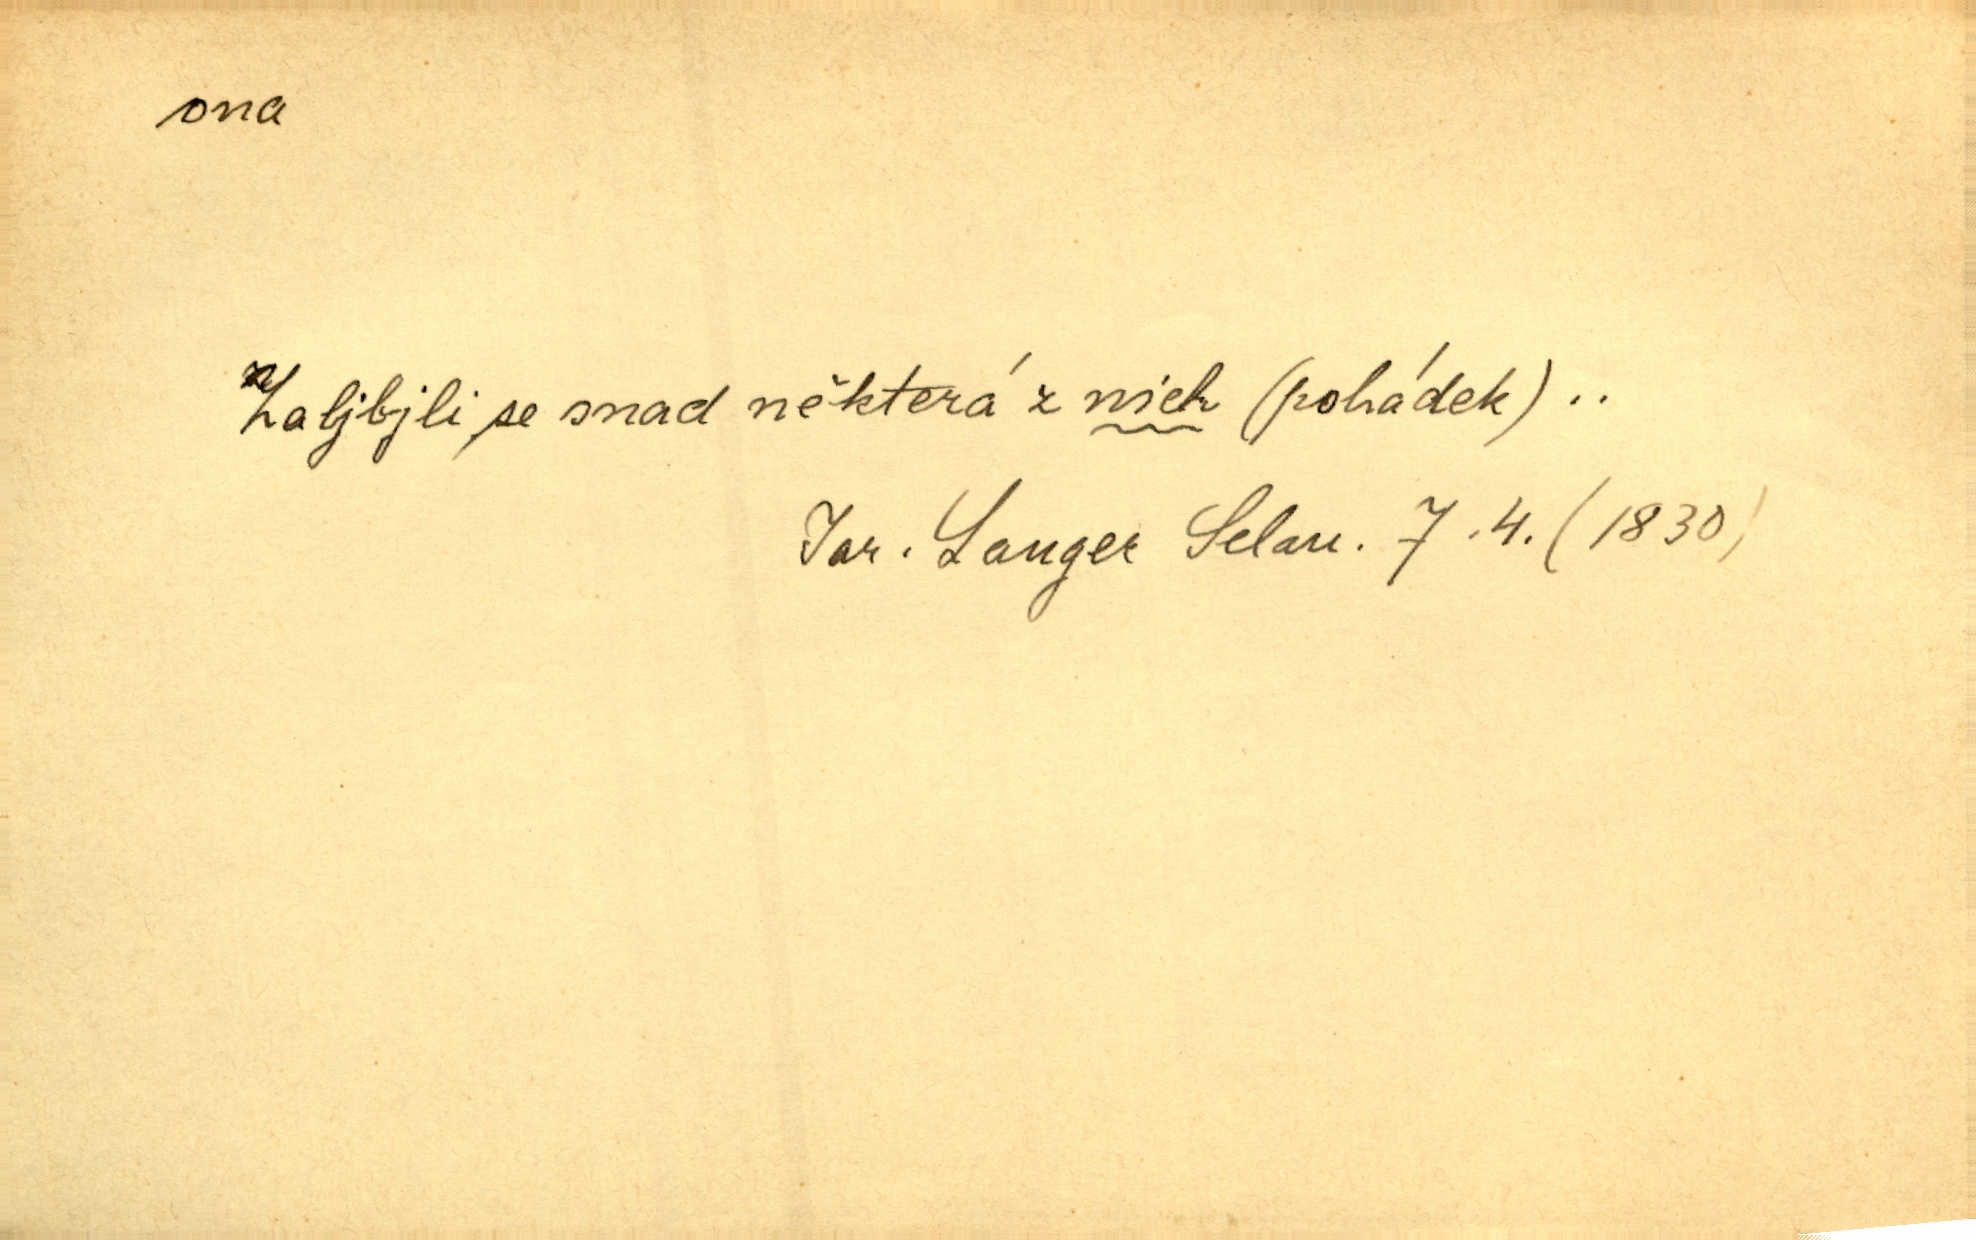 ona
Zaljbjli se snad některá z nich (pohádek) ..
Jar. Langer Selan. 7.4. (1830)